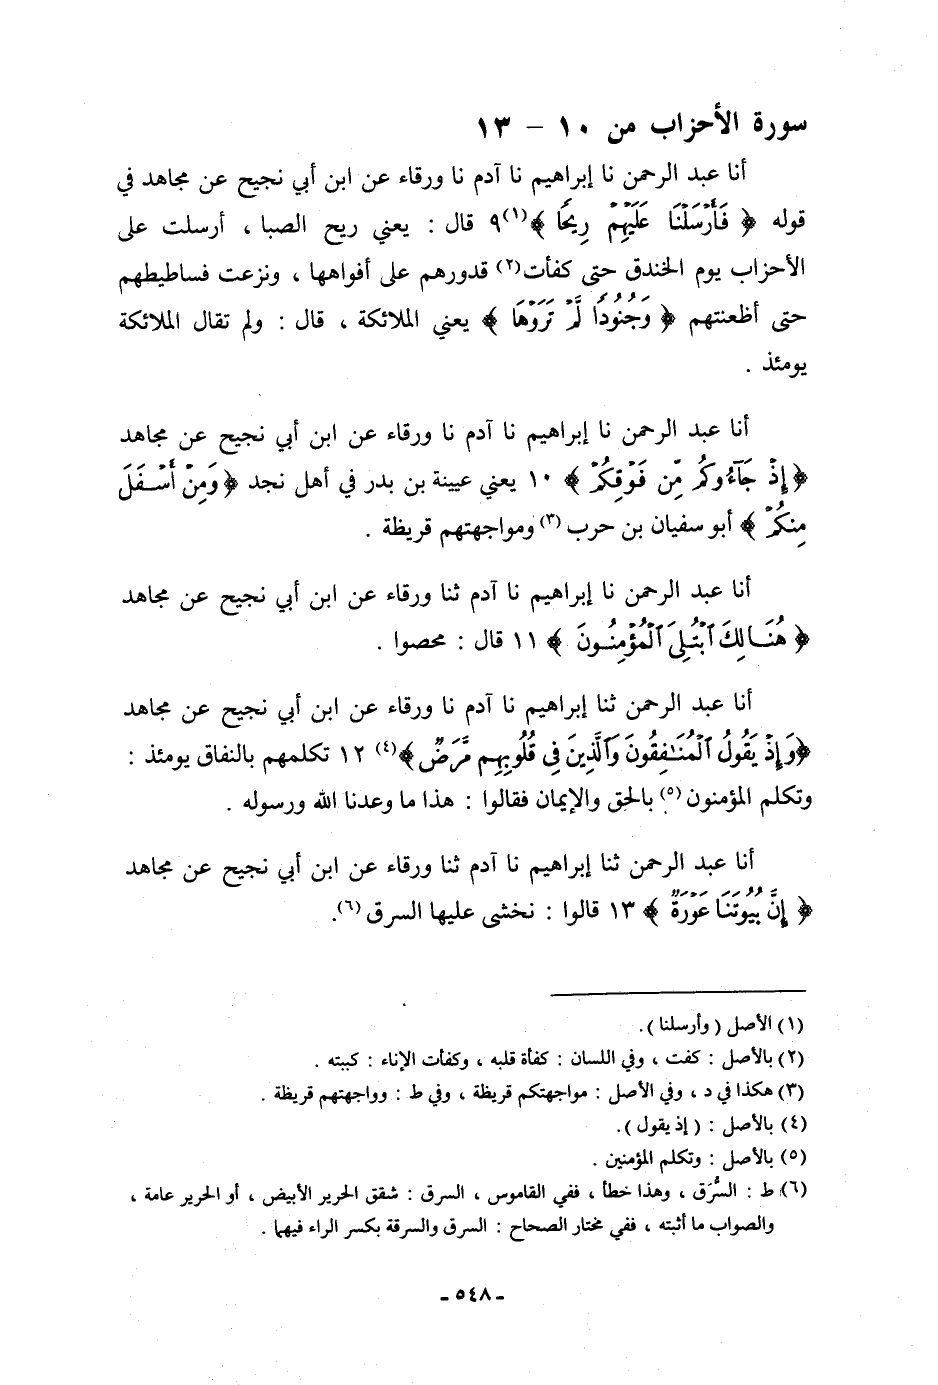 سورة الأحزاب من ١٠ – ١٣
أنا عبد الرحمن نا إبراهيم نا آدم نا ورقاء عن ابن أبي نجيح عن مجاهد في
قوله ﴿ فَأَرْسَلْنَا عَلَيْهِمْ رِيحًا ﴾(١) ٩ قال : يعني ريح الصبا ، أرسلت على
الأحزاب يوم الخندق حتى كفأت(٢) قدورهم على أفواهها ، ونزعت فساطيطهم
حتى أظعنتهم ﴿ وَجُنُودًا لَّمْ تَرَوْهَا ﴾ يعني الملائكة ، قال : ولم تقال الملائكة
يومئذ .
أنا عبد الرحمن نا إبراهيم نا آدم نا ورقاء عن ابن أبي نجيح عن مجاهد
﴿ إِذْ جَآءُوكُم مِّن فَوْقِكُمْ ﴾ ١٠ يعني عيينة بن بدر في أهل نجد ﴿ وَمِنْ أَسْفَلَ
مِنكُمْ ﴾ أبو سفيان بن حرب(٣) ومواجهتهم قريظة .
أنا عبد الرحمن نا إبراهيم نا آدم ثنا ورقاء عن ابن أبي نجيح عن مجاهد
﴿ هُنَالِكَ ٱبْتُلِىَ ٱلْمُؤْمِنُونَ ﴾ ١١ قال : محصوا .
أنا عبد الرحمن ثنا إبراهيم نا آدم نا ورقاء عن ابن أبي نجيح عن مجاهد
﴿وَإِذْ يَقُولُ ٱلْمُنَٰفِقُونَ وَٱلَّذِينَ فِى قُلُوبِهِم مَّرَضٌ ﴾(٤) ١٢ تكلمهم بالنفاق يومئذ :
وتكلم المؤمنون(٥) بالحق والإيمان فقالوا : هذا ما وعدنا الله ورسوله .
أنا عبد الرحمن ثنا إبراهيم نا آدم ثنا ورقاء عن ابن أبي نجيح عن مجاهد
﴿ إِنَّ بُيُوتَنَا عَوْرَةٌ ﴾ ١٣ قالوا : نخشى عليها السرق (٦).
(١) الأصل ( وأرسلنا ).
(٢) بالأصل : كفت ، وفي اللسان : كفأة قلبه ، وكفأت الإناء : كببته .
(٣) هكذا في د ، وفي الأصل : مواجهتكم قريظة ، وفي ط : وواجهتهم قريظة .
(٤) بالأصل : ( إذ يقول ).
(٥) بالأصل : وتكلم المؤمنين .
(٦) ط : السُّرَق ، وهذا خطأ ، ففي القاموس ، السرق : شقق الحرير الأبيض ، أو الحرير عامة ،
والصواب ما أثبته ، ففي مختار الصحاح : السرق والسرقة بكسر الراء فيهما .
ـ ٥٤٨ ـ